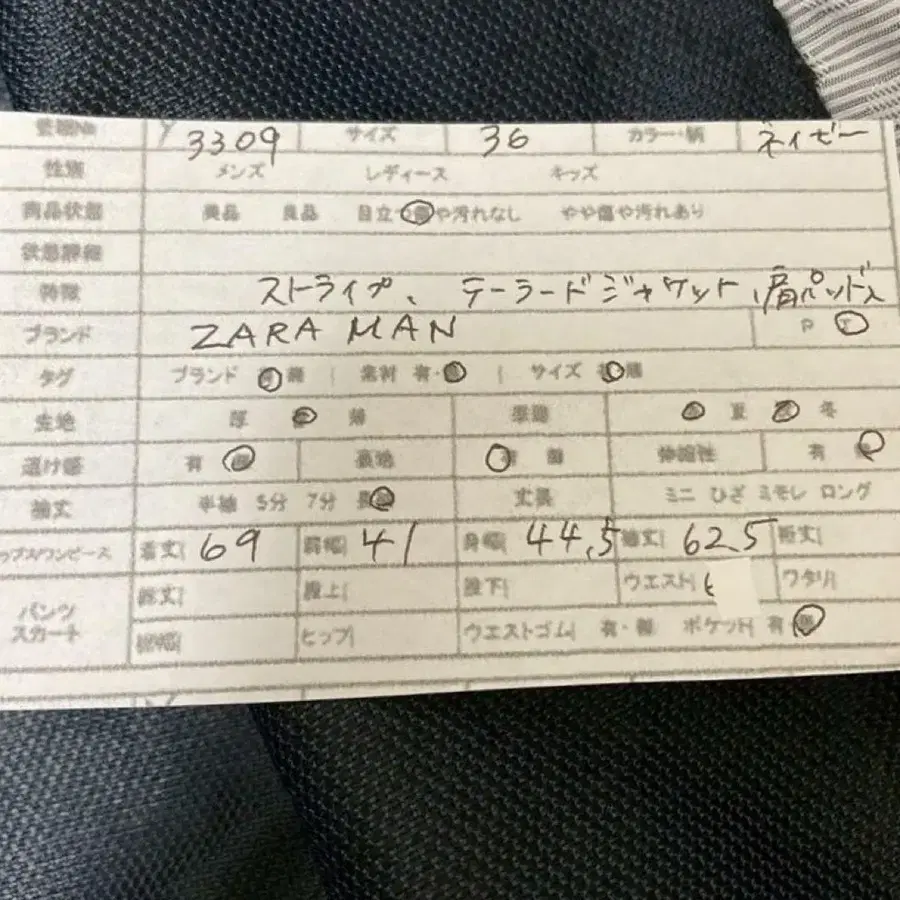 管理No Y 3309 サイズ 36 カラー・柄 ネイビー
性別 メンズ レディース キッズ
商品状態 美品 良品 目立つ傷や汚れなし やや傷や汚れあり
状態詳細
特徴 ストライプ、テーラードジャケット、肩パッド入
ブランド ZARA MAN P T
タグ ブランド 有 無 | 素材 有・無 | サイズ 有 無
生地 厚 中 薄 季節 春 夏 秋 冬
透け感 有 無 裏地 有 無 伸縮性 有 無
袖丈 半袖 5分 7分 長袖 丈長 ミニ ひざ ミモレ ロング
ップス/ワンピース 着丈| 69 肩幅| 41 身幅| 44.5 袖丈| 62.5 裄丈|
パンツ スカート 総丈| 股上| 股下| ウエスト| ワタリ|
裾幅| ヒップ| ウエストゴム| 有・無 ポケット| 有 無